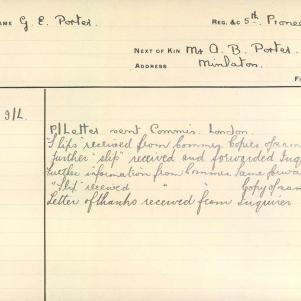 AME G. E. Porter. REG. &C 5th. Pionee
NEXT OF KIN Mr A. B. Porter.
ADDRESS Minlaton.
F
9/L. P/Letter sent Commis. London.
"Slips" received from Commis. Copies of sam
Further "slip" received and forwarded Inqu
Further information from Commis. same forwar
"Slip" received " " Copy of sam
Letter of thanks received from Inquirer